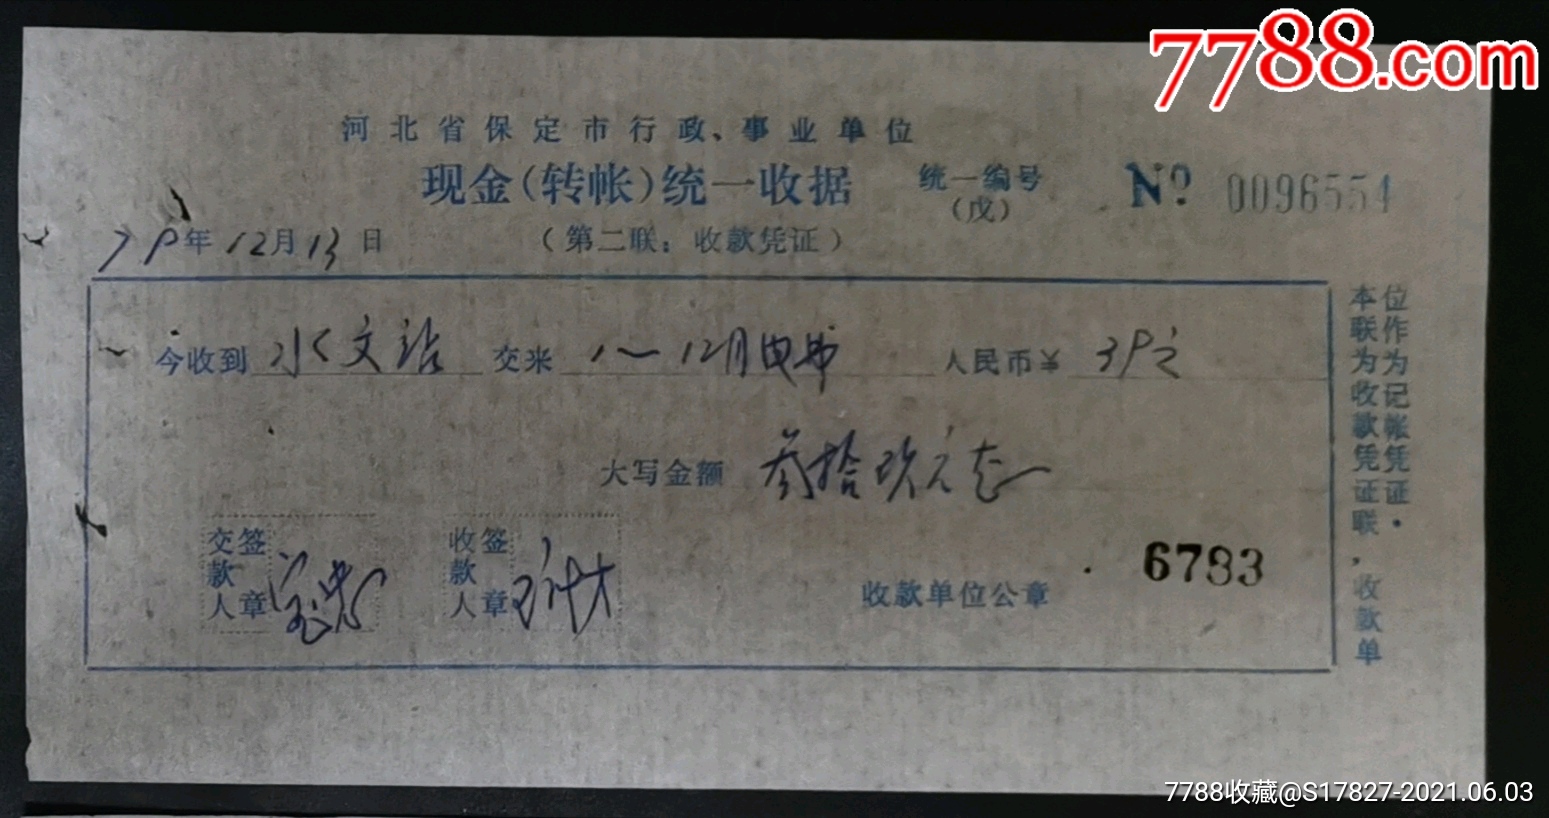 7788.com
河北省保定市行政、事业单位
现金(转帐)统一收据 统一编号(戊) № 0096554
79年12月13日 (第二联：收款凭证)
今收到 水文站 交来 1～12月电费 人民币¥ 39元
大写金额 叁拾玖元整
交款人签章
收款人签章
收款单位公章 6783
本联为收款凭证联，收款单
位作为记帐凭证。
7788收藏@S17827-2021.06.03